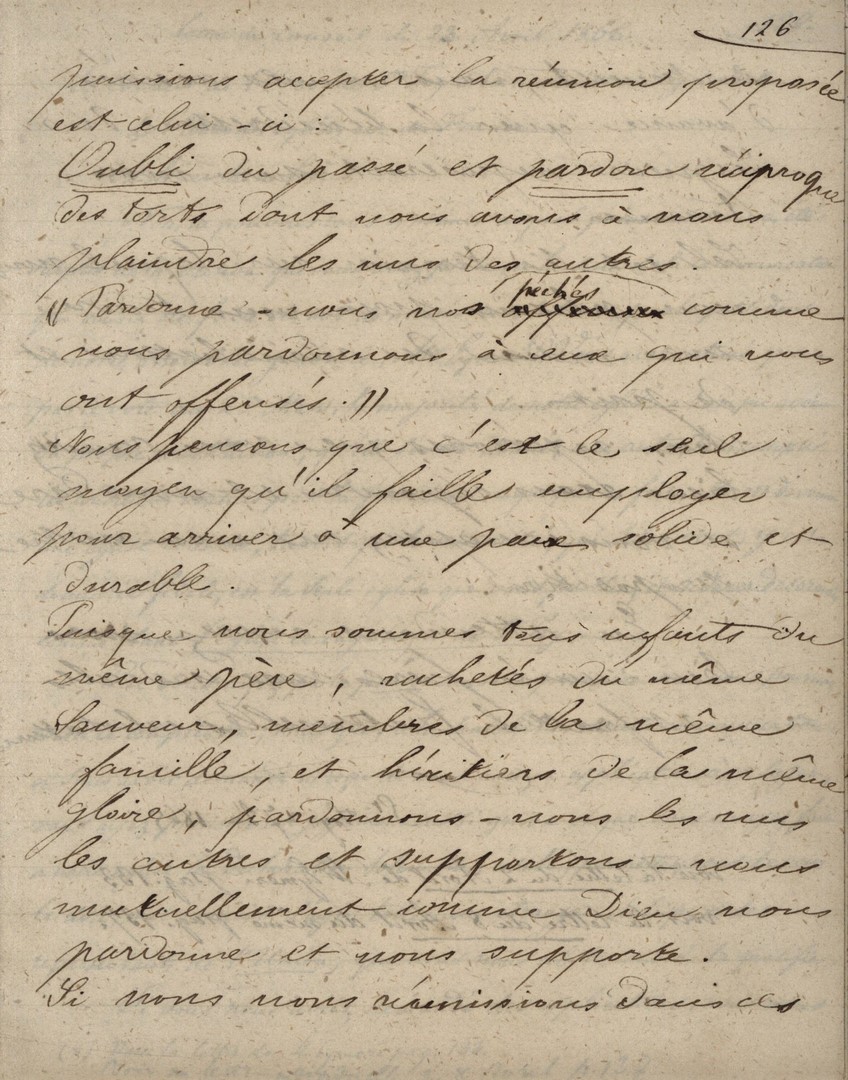 126
puissions accepter la réunion proposée
est celui-ci :
Oubli du passé et pardon réciproque
des torts dont nous avons à nous
plaindre les uns des autres.
"Pardonne-nous nos péchés comme
nous pardonnons à ceux qui nous
ont offensés."
Nous pensons que c'est le seul
moyen qu'il faille employer
pour arriver à une paix solide et
durable.
Puisque nous sommes tous enfants du
même père, rachetés du même
Sauveur, membres de la même
famille, et héritiers de la même
gloire, pardonnons-nous les uns
les autres et supportons-nous
mutuellement comme Dieu nous
pardonne et nous supporte.
Si nous nous réunissions dans ces